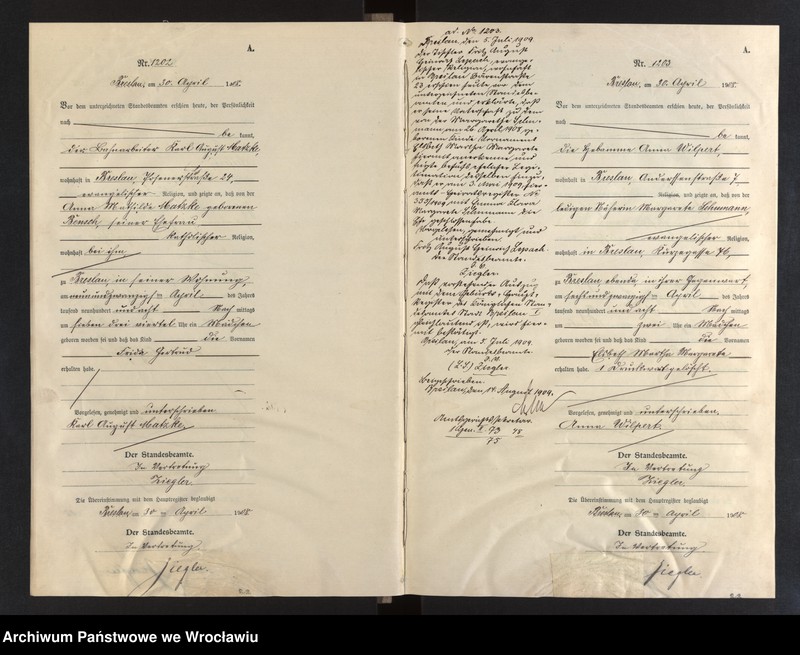 A.
Nr. 1202
Breslau, am 30. April 1908.
Vor dem unterzeichneten Standesbeamten erschien heute, der Persönlichkeit
nach
be kannt,
der Bahnarbeiter Karl August Matzke,
wohnhaft in Breslau, 24,
evangelischer Religion, und zeigte an, daß von der
Anna Mathilde Matzke geborenen
seiner Ehefrau
katholischer Religion,
wohnhaft bei ihm
zu Breslau, in seiner Wohnung,
am neunundzwanzigsten April des Jahres
tausend neunhundert und acht Nachmittags
um sieben drei viertel Uhr ein Mädchen
geboren worden sei und daß das Kind die Vornamen
Frida Gertrud
erhalten habe.
Vorgelesen, genehmigt und unterschrieben
Karl August Matzke
Der Standesbeamte.
In Vertretung
Ziegler.
Die Übereinstimmung mit dem Hauptregister beglaubigt
Breslau, am 30ten April 1908.
Der Standesbeamte.
In Vertretung
Ziegler.
ad. No 1203.
Breslau, den 5. Juli 1909.
Der Tischler Fritz August
Heinrich evange-
lischer Religion, wohnhaft
in Breslau
23 erschien heute vor dem
unterzeichneten Standesbe-
amten und erklärte, daß
er seine Vaterschaft zu dem
von der Margarethe
am 26. April 1908 ge-
borenen Kinde Vornamens
Elsbeth Martha Margarete
hiermit anerkenne und
Vorgelesen, genehmigt und
unterschrieben
Fritz August Heinrich
Der Standesbeamte.
Ziegler.
Daß vorstehender Auszug
mit dem Geburts-Haupt-
Register des Königlichen Stan-
desamtes Stadt Breslau I
gleichlautend ist, wird hier-
mit bestätigt.
Breslau, am 5. Juli 1909.
Der Standesbeamte.
(L.S.) Ziegler
Beigeschrieben
Breslau, den 14. August 1909.
Amtsgerichtssekretär.
A.
Nr. 1203
Breslau, am 30. April 1908.
Vor dem unterzeichneten Standesbeamten erschien heute, der Persönlichkeit
nach
be kannt,
die Hebamme Anna Wilpert,
wohnhaft in Breslau, Anderssenstraße 7
Religion, und zeigte an, daß von der
ledigen Näherin Margarete
evangelischer Religion,
wohnhaft in Breslau,
zu Breslau ebenda, in ihrer Gegenwart,
am sechsundzwanzigsten April des Jahres
tausend neunhundert und acht Nachmittags
um zwei Uhr ein Mädchen
geboren worden sei und daß das Kind die Vornamen
Elsbeth Martha Margarete
erhalten habe. 1 Druckwort gelöscht.
Vorgelesen, genehmigt und unterschrieben,
Anna Wilpert.
Der Standesbeamte.
In Vertretung
Ziegler.
Die Übereinstimmung mit dem Hauptregister beglaubigt
Breslau, am 30ten April 1908.
Der Standesbeamte.
In Vertretung
Ziegler
Archiwum Państwowe we Wrocławiu